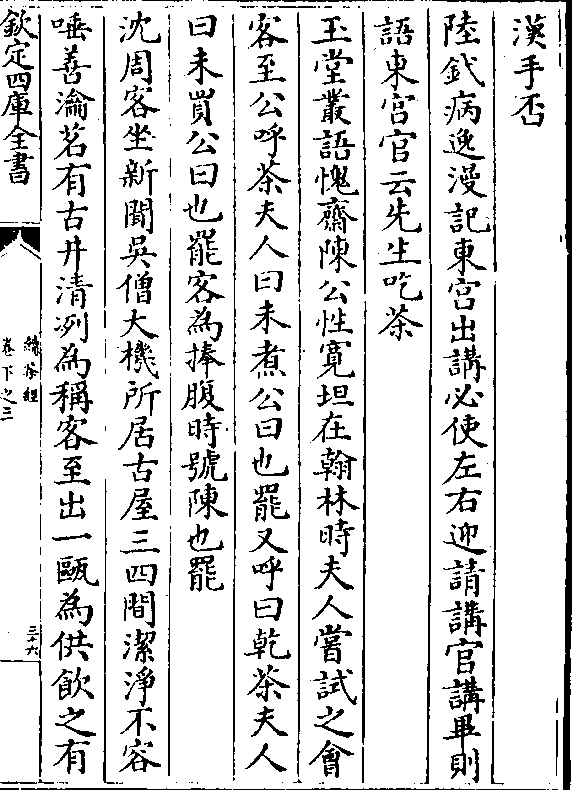 漢手否
陸釴病逸漫記東宫出講必使左右迎請講官講畢則
語東宫官云先生吃茶
玉堂叢語愧齋陳公性寛坦在翰林時夫人嘗試之會
客至公呼茶夫人曰未煮公曰也罷又呼曰乾茶夫人
曰未買公曰也罷客為捧腹時號陳也罷
沈周客坐新聞吳僧大機所居古屋三四間潔淨不容
唾善瀹茗有古井清冽為稱客至出一甌為供飲之有
欽定四庫全書
續茶經
卷下之三
三十六